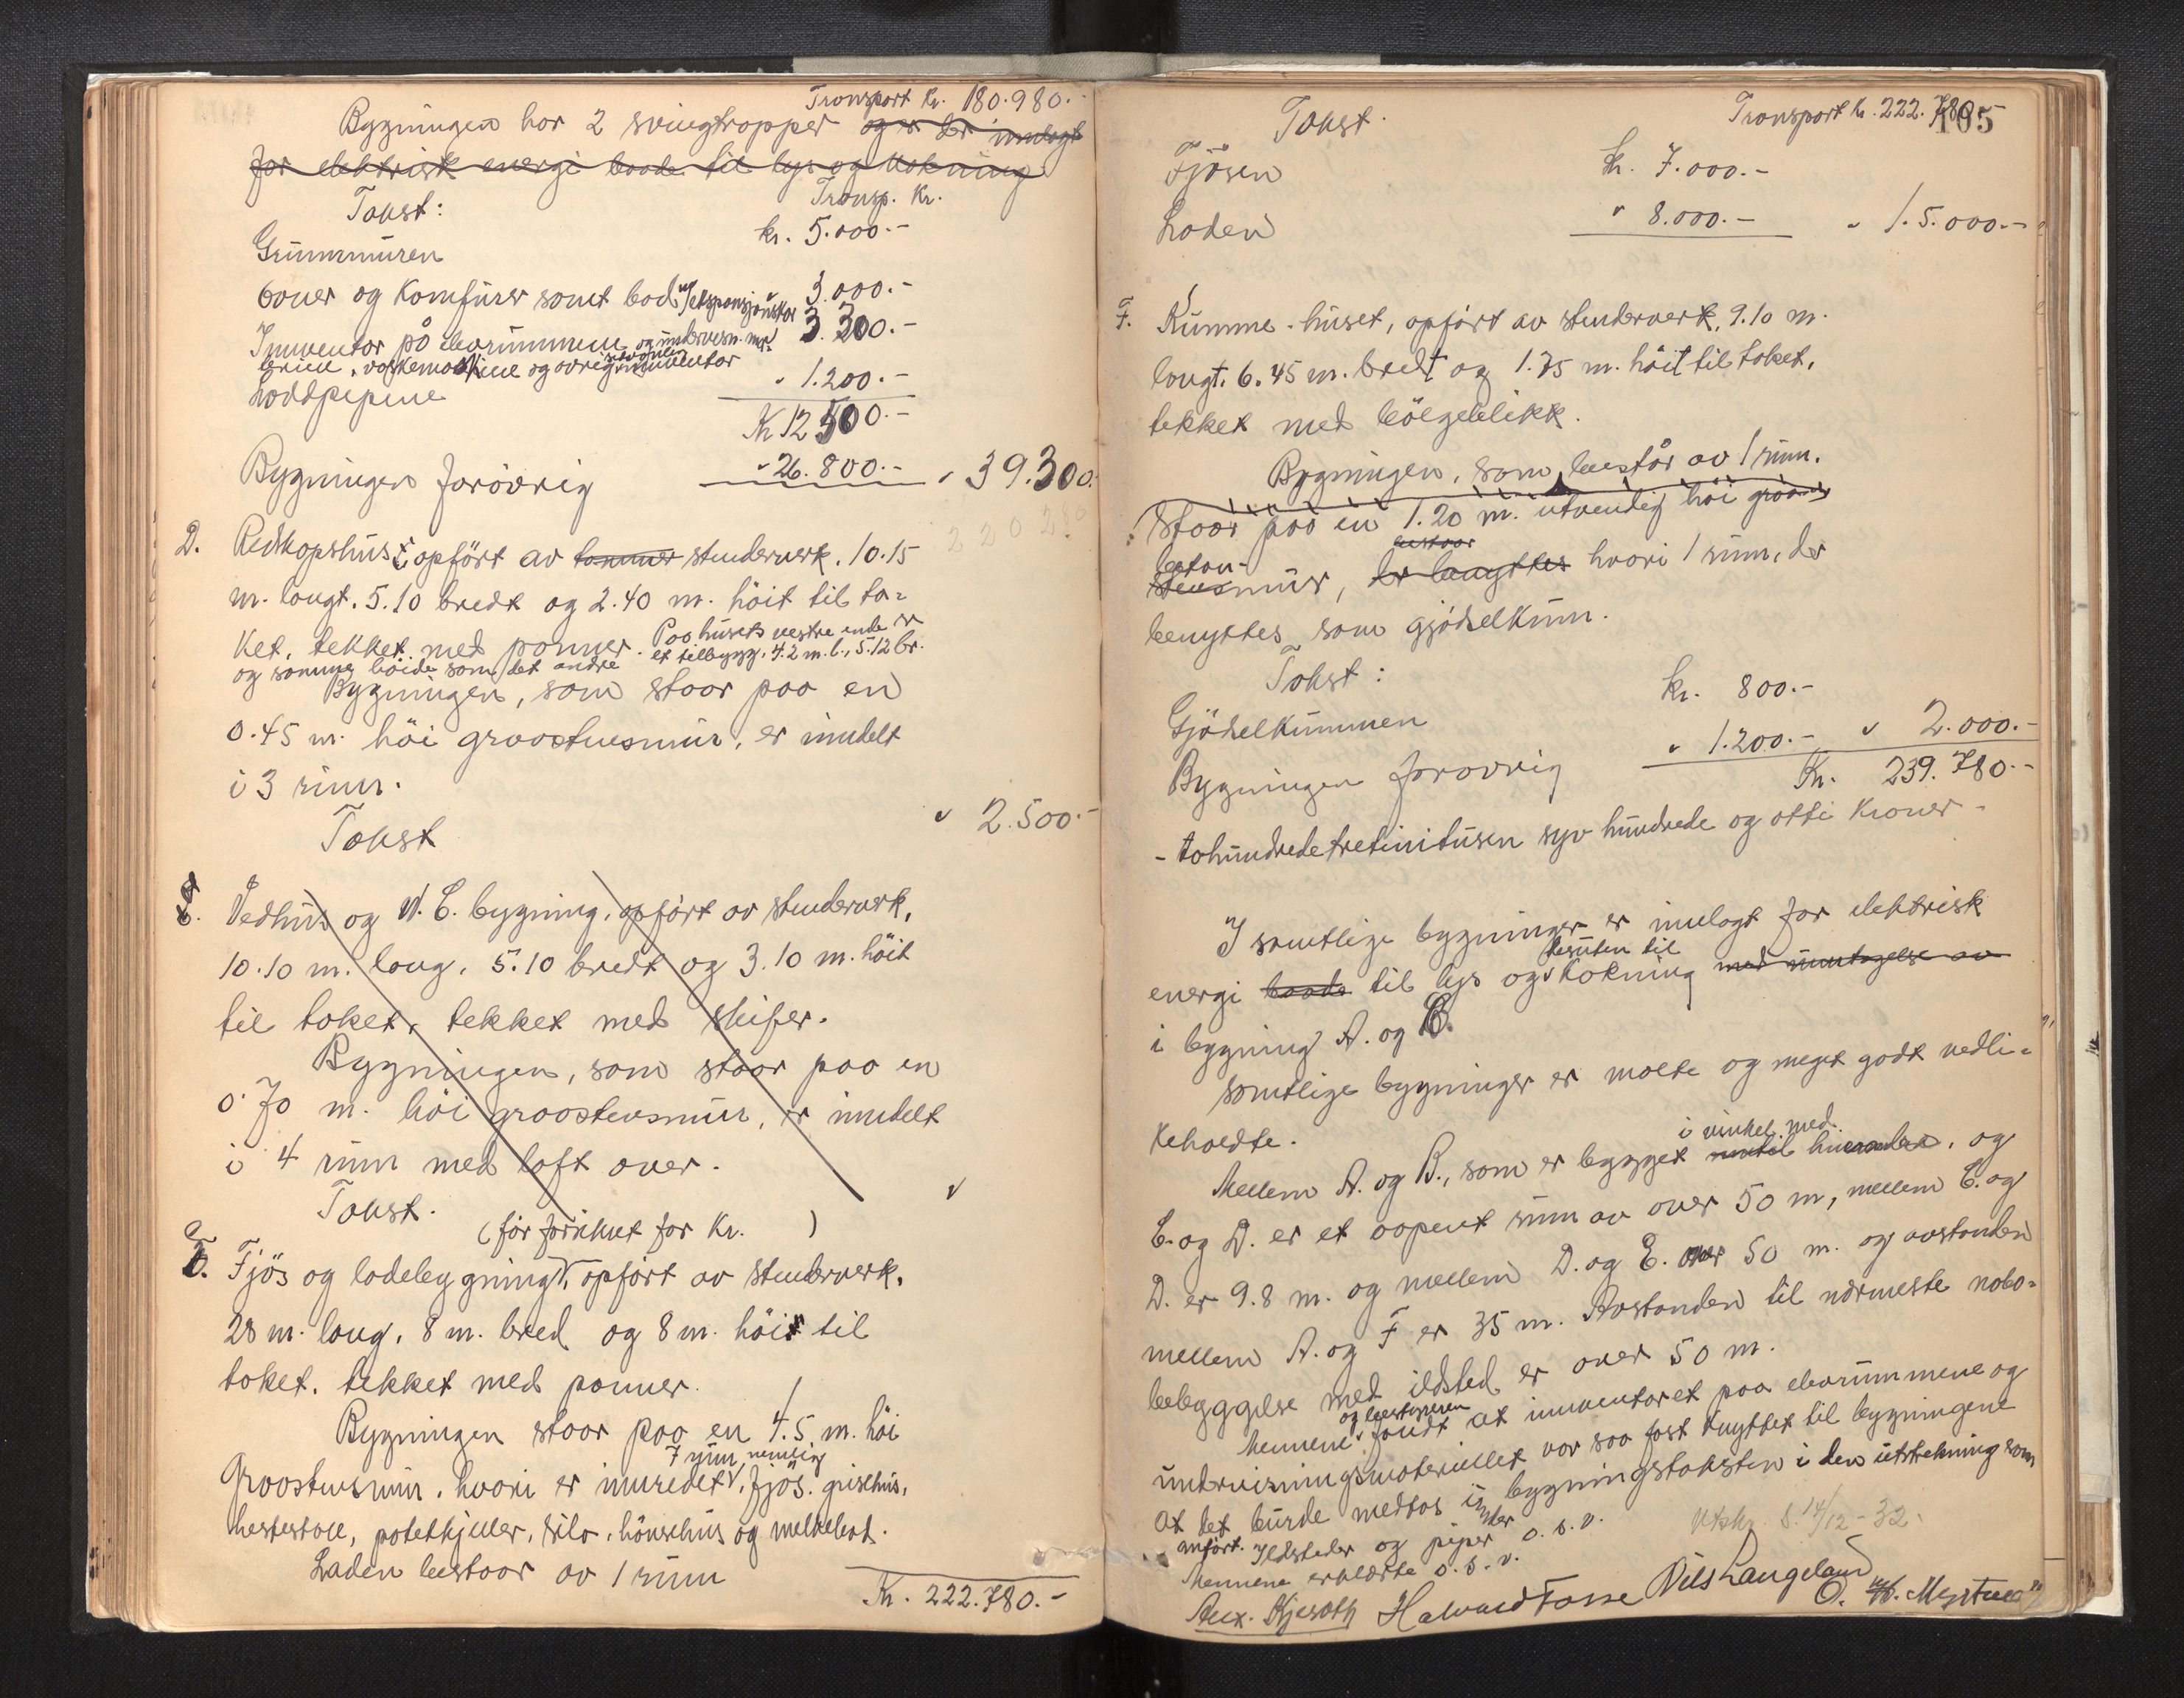 Transport Kr. 180.980.-
Bygningen har 2 svingtrapper og er der innlagt
for elektrisk energi baade til lys og kokning
Takst: Transp. Kr.
Grunnmuren kr. 5.000.-
Ovner og komfurer samt bad m/ekspansjonskar " 3.000.-
Inventar på elevrummene og undervisn. mat. 3.300.-
vaskemaskine og øvrig inventar
Loddpipene " 1.200.-
Kr 12500.-
Bygningen forövrig " 26.800.- " 39.300.-
220 280
D. Redskapshus, opfört av stenderverk. 10.15
m. langt. 5.10 bredt og 2.40 m. höit til ta-
ket, tekket med panner. Paa husets vestre ende er
et tilbygg, 4.2 m. l., 5.12 br.
og samme höide som det andre
Bygningen, som staar paa en
0.45 m. höi graastensmur, er inndelt
i 3 rum.
Takst " 2.500.-
Vedhus og W.C. bygning, opfört av stenderverk,
10.10 m. lang. 5.10 bredt og 3.10 m. höit
til taket, tekket med skifer.
Bygningen, som staar paa en
0.70 m. höi graastensmur, er inndelt
i 4 rum med loft over.
Takst. "
(för forsikret for Kr. )
E. Fjös og ladebygning, opfört av stenderverk.
28 m. lang. 8 m. bred og 8 m. höi til
taket. tekket med panner.
Bygningen staar paa en 4.5 m. höi
7 rum nemlig
Graastensmur. hvori er innredet fjös. grisehus,
hestestall, potetkjeller, silo, hönsehus og melkebod.
Laden bestaar av 1 rum
Kr. 222.780.-
Transport kr. 222.780.-
105
Takst.
Fjösen kr. 7.000.-
Laden " 8.000.- " 15.000.-
F. Kumme-huset, opfört av stenderverk, 9.10 m.
langt. 6.45 m. bredt og 1.75 m. höit til taket.
tekket med bölgeblikk.
Bygningen, som består av 1 rum.
staar paa en 1.20 m. utvendig höi
bestaar
beton-
stensmur, der benyttes hvori 1 rum, der
benyttes som gjödselkum.
Takst:
Gjödselkummen kr. 800.-
Bygningen forövrig " 1.200.- " 2.000.-
Kr. 239.780.-
- tohundredetretinitusen syv hundrede og otti Kroner -
I samtlige bygninger er innlagt for elektrisk
desuten til
energi baade til lys og kokning med unntagelse av
i bygning A. og C.
Samtlige bygninger er malte og meget godt vedli-
keholdte.
i vinkel med
Mellem A. og B., som er bygget inntil hverandre, og
C. og D. er et aapent rum av over 50 m, mellem C. og
D. er 9.8 m. og mellem D. og E. over 50 m. og avstanden
mellem A. og F er 35 m. Avstanden til nærmeste nabo-
bebyggelse med ildsted er over 50 m.
og bestyreren
Mennene fandt at inventaret paa elevrummene og
undervisningsmateriellet var saa fast knyttet til bygningene
at det burde medtas i bygningstaksten i den utstrekning som
anfört. Ildsteder og piper o.s.v.
Mennene erklærte o.s.v.
Utskr. S. 14/12-32.
Alex. Kjeroth Halvard Fosse Nils Langeland